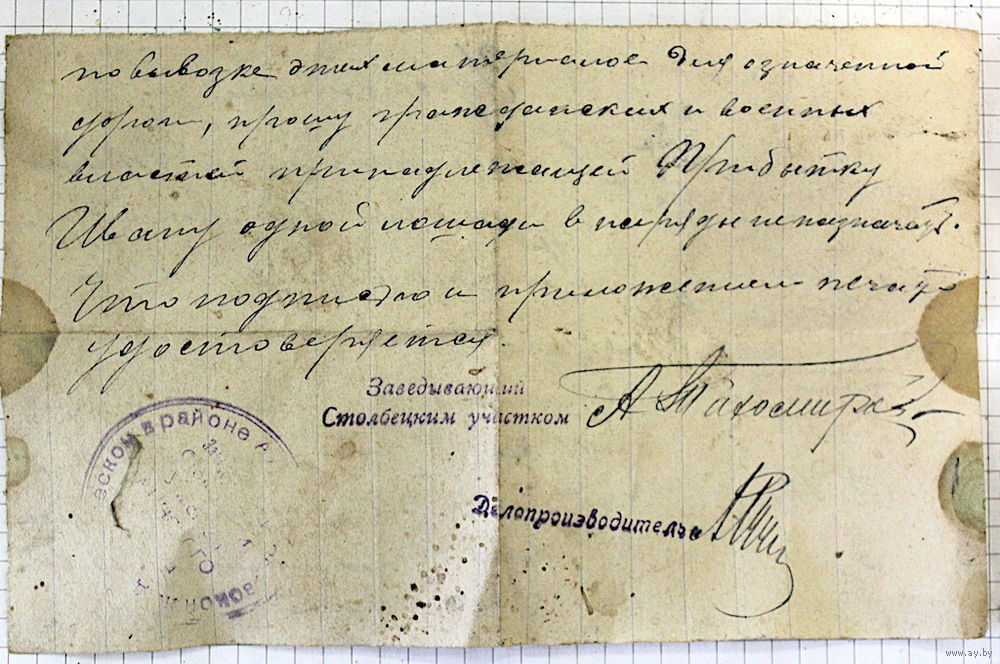 по вывозке этих материалов для означенной
дороги, прошу гражданских и военных
властей принадлежащей Прибытку
Ивану одной лошади в наряды не назначать.
Что подписью и приложением печати
удостоверяется.
Заведывающий
Столбецким участком
А Тихомиров
Делопроизводитель
в районе
www.ay.by